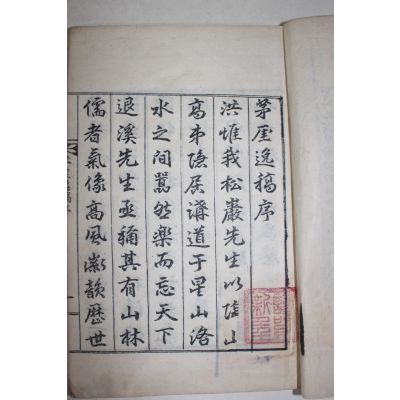 茅屋逸稿序
洪惟我松巖先生以陶山
高弟隱居講道于星山洛
水之間囂然樂而忘天下
退溪先生亟稱其有山林
儒者氣像高風徽韻歷世